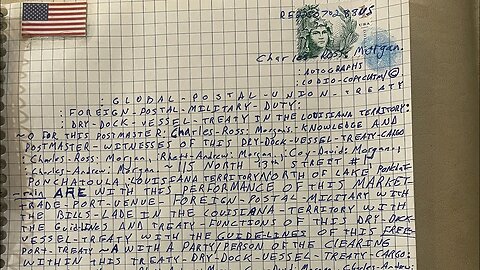 Charles Ross Morgan.
: AUTOGRAPHS
: LODIO-COPYCLAIM ©
: GLOBAL-POSTAL-UNION-TREATY
: FOREIGN-POSTAL-MILITARY-DUTY:
: DRY-DOCK-VESSEL-TREATY IN THE LOUISIANA TERRITORY:
~0 FOR THIS POSTMASTER: Charles-Ross: Morgan's-KNOWLEDGE AND
POSTMASTER-WITNESSES OF THIS DRY-DOCK-VESSEL-TREATY-CARGO
: Charles-Ross: Morgan., Rhett-Andrew: Morgan., Coy-David: Morgan.,
Andrew: Morgan. 115 NORTH 13th STREET #
PONCHATOULA, LOUISIANA TERRITORY NORTH OF LAKE
ARE WITH THIS PERFORMANCE OF THIS MARKET-
TRADE-PORT-VENUE-FOREIGN-POSTAL-MILITARY WITH
THE BILLS-LADE IN THE LOUISIANA-TERRITORY WITH
THE GUIDLINES AND TREATY-FUNCTIONS OF THIS DRY-DOCK-
VESSEL-TREATY WITH THE GUIDELINES OF THIS FREE-
PORT-TREATY ~A WITH A PARTY/PERSON OF THE CLEARING
WITHIN THIS TREATY-DRY-DOCK-VESSEL-TREATY-CARGO:
Morgan., Coy-David: Morgan., Charles-Andrew: